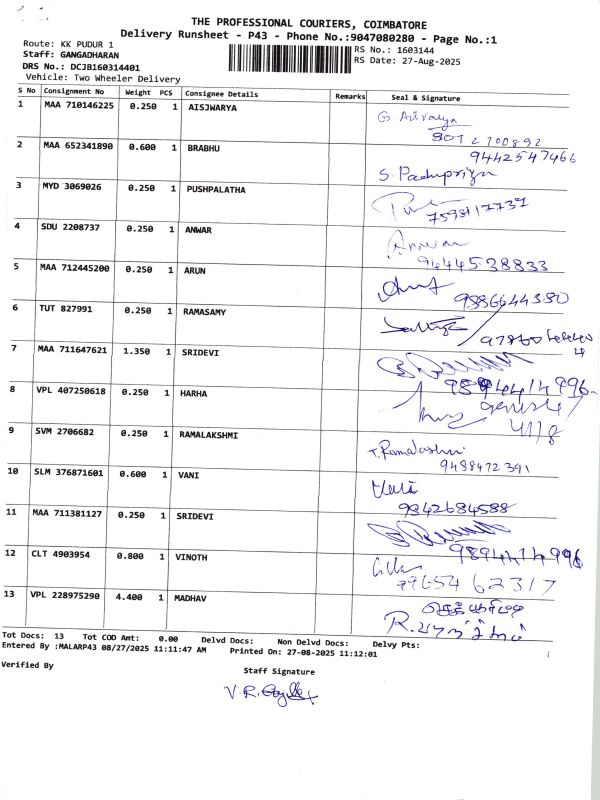 THE PROFESSIONAL COURIERS, COIMBATORE
Delivery Runsheet - P43 - Phone No.:9047080280 - Page No.:1
Route: KK PUDUR 1
RS No.: 1603144
Staff: GANGADHARAN
RS Date: 27-Aug-2025
DRS No.: DCJB160314401
Vehicle: Two Wheeler Delivery
S No Consignment No Weight PCS Consignee Details Remarks Seal & Signature
1 MAA 710146225 0.250 1 AISJWARYA
8072700892
2 MAA 652341890 0.600 1 BRABHU 9442547466
S. Padmpriya
3 MYD 3069026 0.250 1 PUSHPALATHA
7598117737
4 SDU 2208737 0.250 1 ANWAR Anwar
9444538833
5 MAA 712445200 0.250 1 ARUN
9886644380
6 TUT 827991 0.250 1 RAMASAMY
7 MAA 711647621 1.350 1 SRIDEVI
9894414996
8 VPL 407250618 0.250 1 HARHA
41/8
9 SVM 2706682 0.250 1 RAMALAKSHMI T. Ramalakshmi
9488472391
10 SLM 376871601 0.600 1 VANI
9842684588
11 MAA 711381127 0.250 1 SRIDEVI
9894414996
12 CLT 4903954 0.800 1 VINOTH
9965462317
13 VPL 228975290 4.400 1 MADHAV
Tot Docs: 13 Tot COD Amt: 0.00 Delvd Docs: Non Delvd Docs: Delvy Pts:
Entered By :MALARP43 08/27/2025 11:11:47 AM Printed On: 27-08-2025 11:12:01
Verified By
Staff Signature